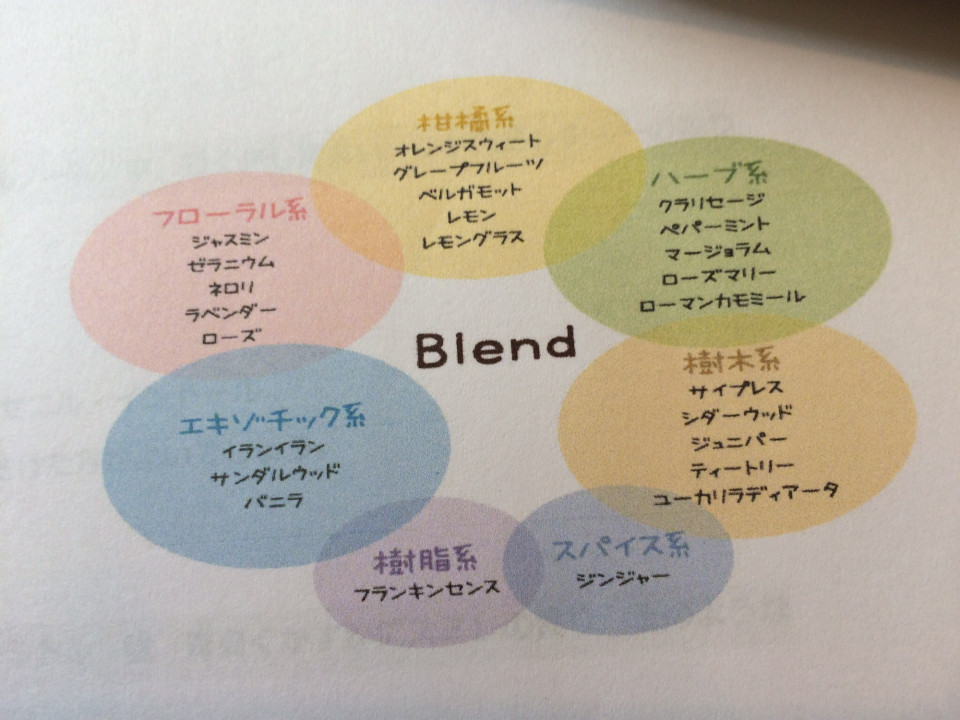 柑橘系
オレンジスウィート
グレープフルーツ
ベルガモット
レモン
レモングラス
ハーブ系
クラリセージ
ペパーミント
マージョラム
ローズマリー
ローマンカモミール
フローラル系
ジャスミン
ゼラニウム
ネロリ
ラベンダー
ローズ
Blend
樹木系
サイプレス
シダーウッド
ジュニパー
ティートリー
ユーカリラディアータ
エキゾチック系
イランイラン
サンダルウッド
バニラ
樹脂系
フランキンセンス
スパイス系
ジンジャー